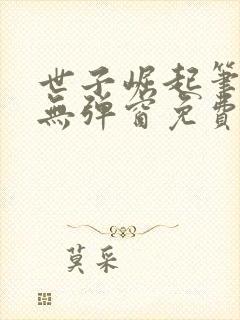 世子崛起筆
無彈窗免費
莫采